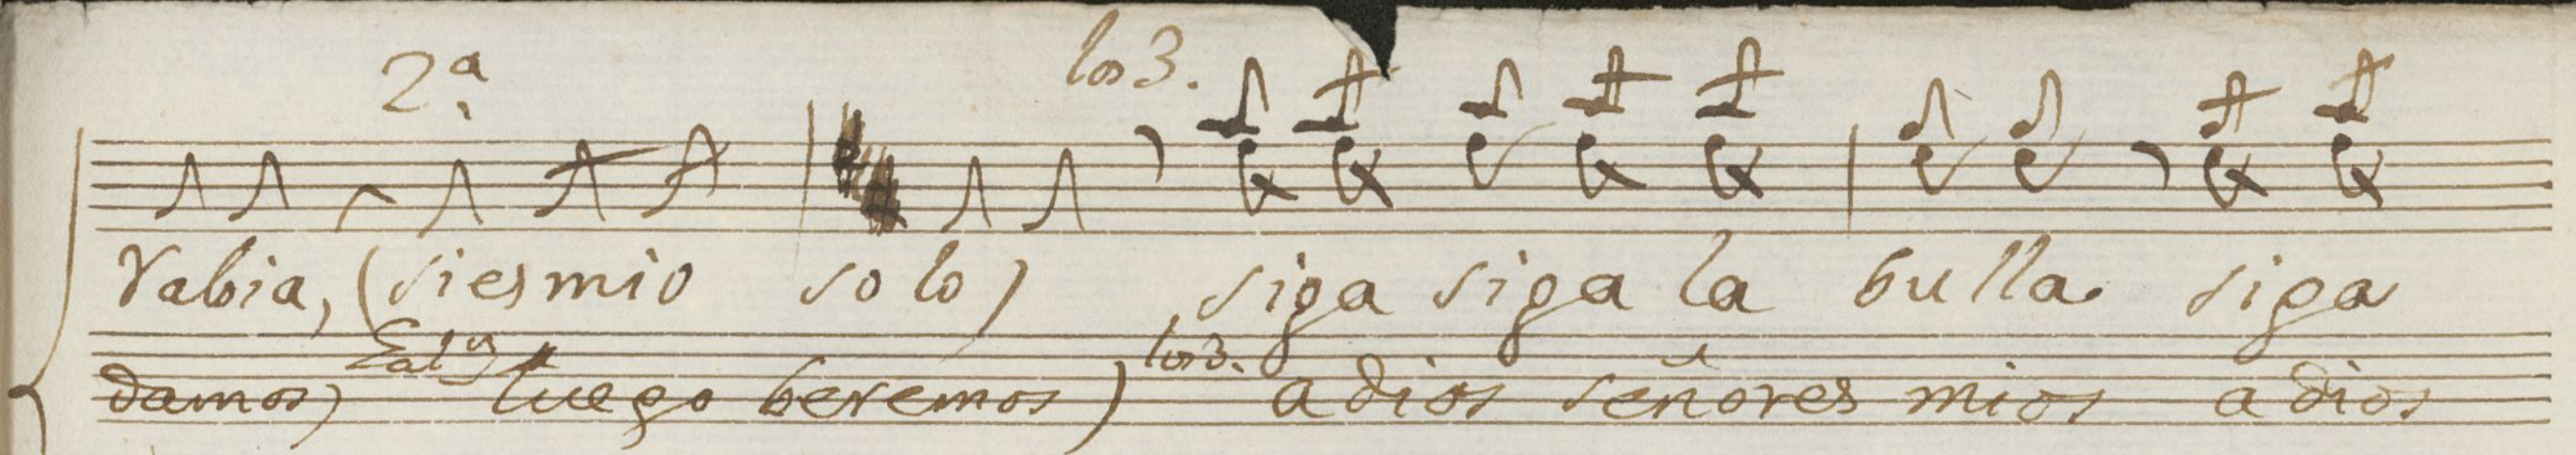 2ª los 3.
rabia, (si es mio solo) siga siga la bulla. siga
los 3.
damos) luego beremos) a dios señores mios a dios